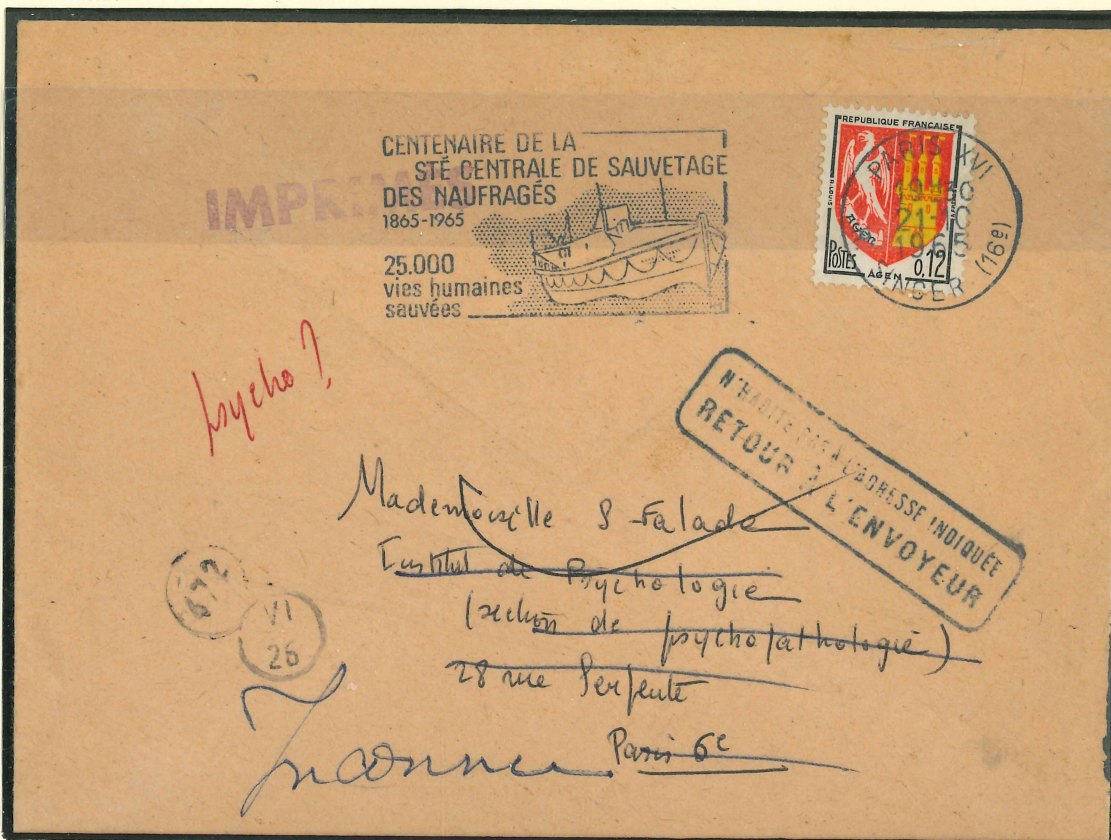 CENTENAIRE DE LA
STÉ CENTRALE DE SAUVETAGE
DES NAUFRAGÉS
1865-1965
25.000
vies humaines
sauvées
IMPRIMÉ
REPUBLIQUE FRANÇAISE
AGEN
POSTES
AGEN
0,12
PARIS XVI
19H30
21-10
1965
SINGER (16e)
psycho?
N'HABITE PAS A L'ADRESSE INDIQUÉE
RETOUR À L'ENVOYEUR
Mademoiselle S Falade
Institut de Psychologie
(section de psychopathologie)
28 rue Serpente
Paris 6e
672
VI
26
Inconnu